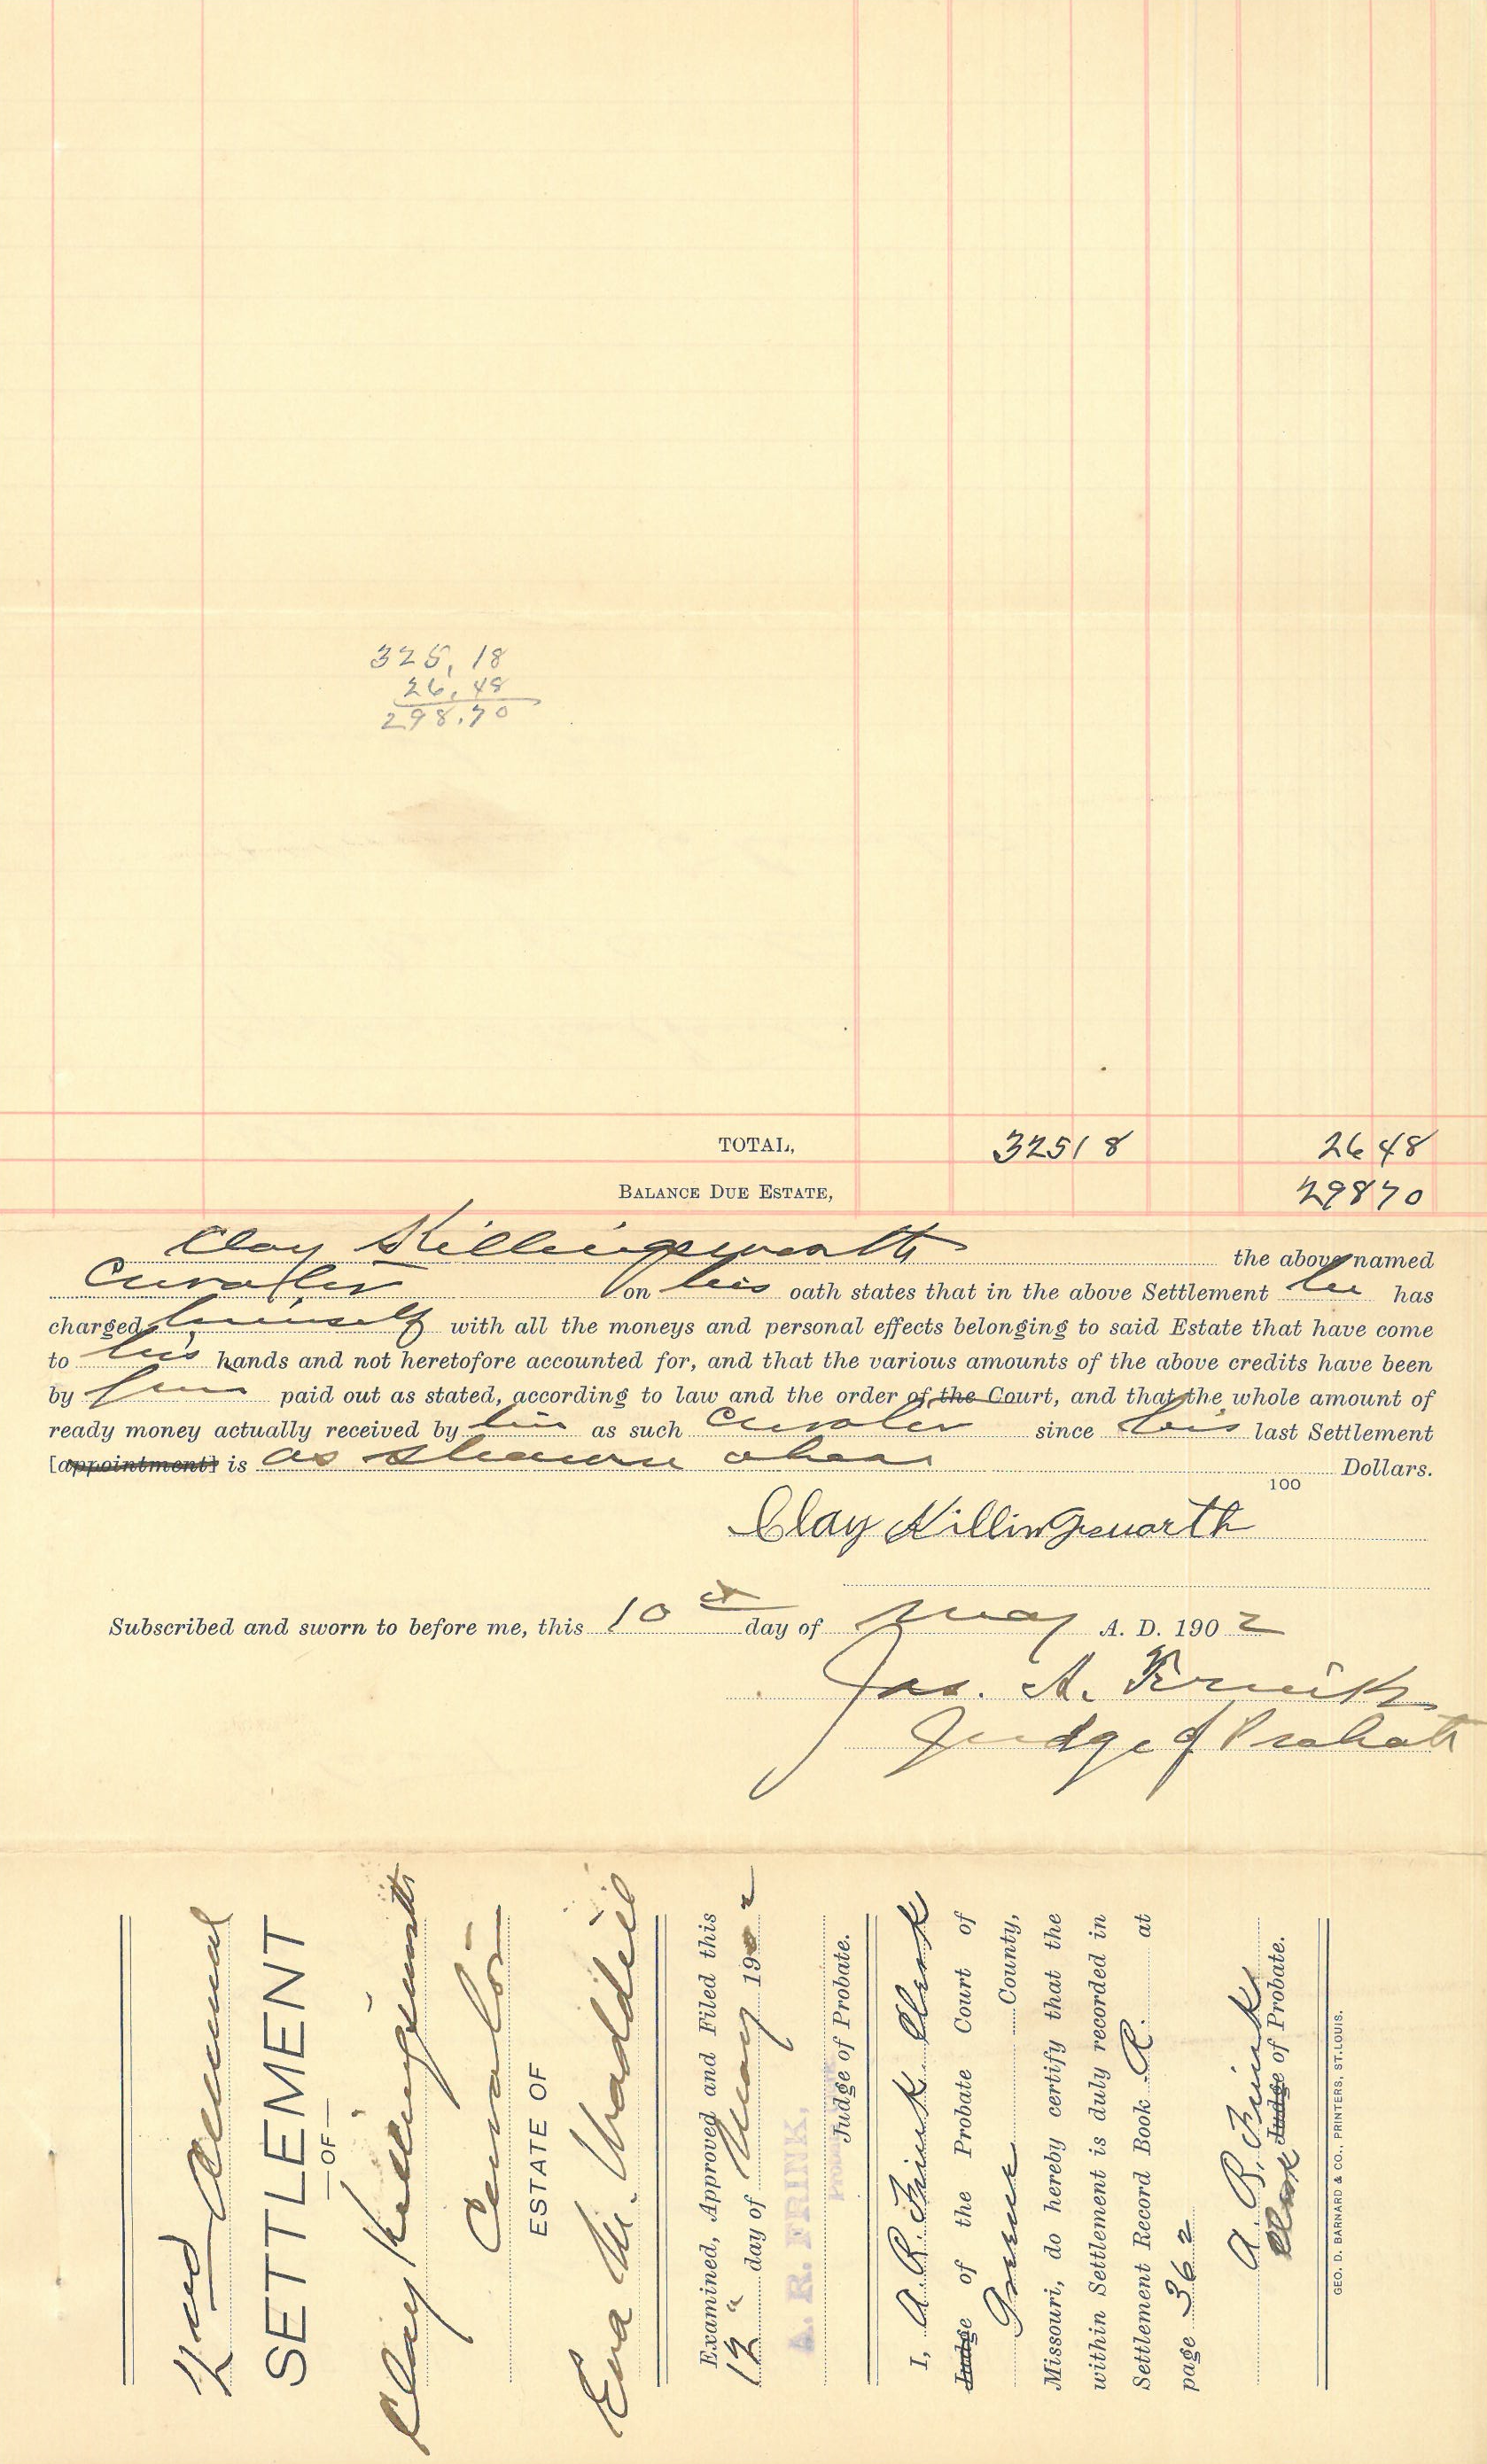 325.18
26.48
298.70
TOTAL, 325 18 26 48
BALANCE DUE ESTATE, 298 70
Clay Killingsworth the above named
Curator on his oath states that in the above Settlement he has
charged himself with all the moneys and personal effects belonging to said Estate that have come
to his hands and not heretofore accounted for, and that the various amounts of the above credits have been
by him paid out as stated, according to law and the order of the Court, and that the whole amount of
ready money actually received by him as such Curator since his last Settlement
[appointment] is as shown above Dollars.
100
Clay Killingsworth
Subscribed and sworn to before me, this 10th day of May A. D. 1902
Jas. A. Frink
Judge of Probate
2nd Annual
SETTLEMENT
—OF—
Clay Killingsworth
Curator
ESTATE OF
Eva M. Waddill
Examined, Approved and Filed this
12" day of May 1902
A. R. FRINK,
Judge of Probate.
I, A. R. Frink Clerk
Judge of the Probate Court of
Greene County,
Missouri, do hereby certify that the
within Settlement is duly recorded in
Settlement Record Book R. at
page 362
A. R. Frink
Clerk Judge of Probate.
GEO. D. BARNARD & CO., PRINTERS, ST. LOUIS.